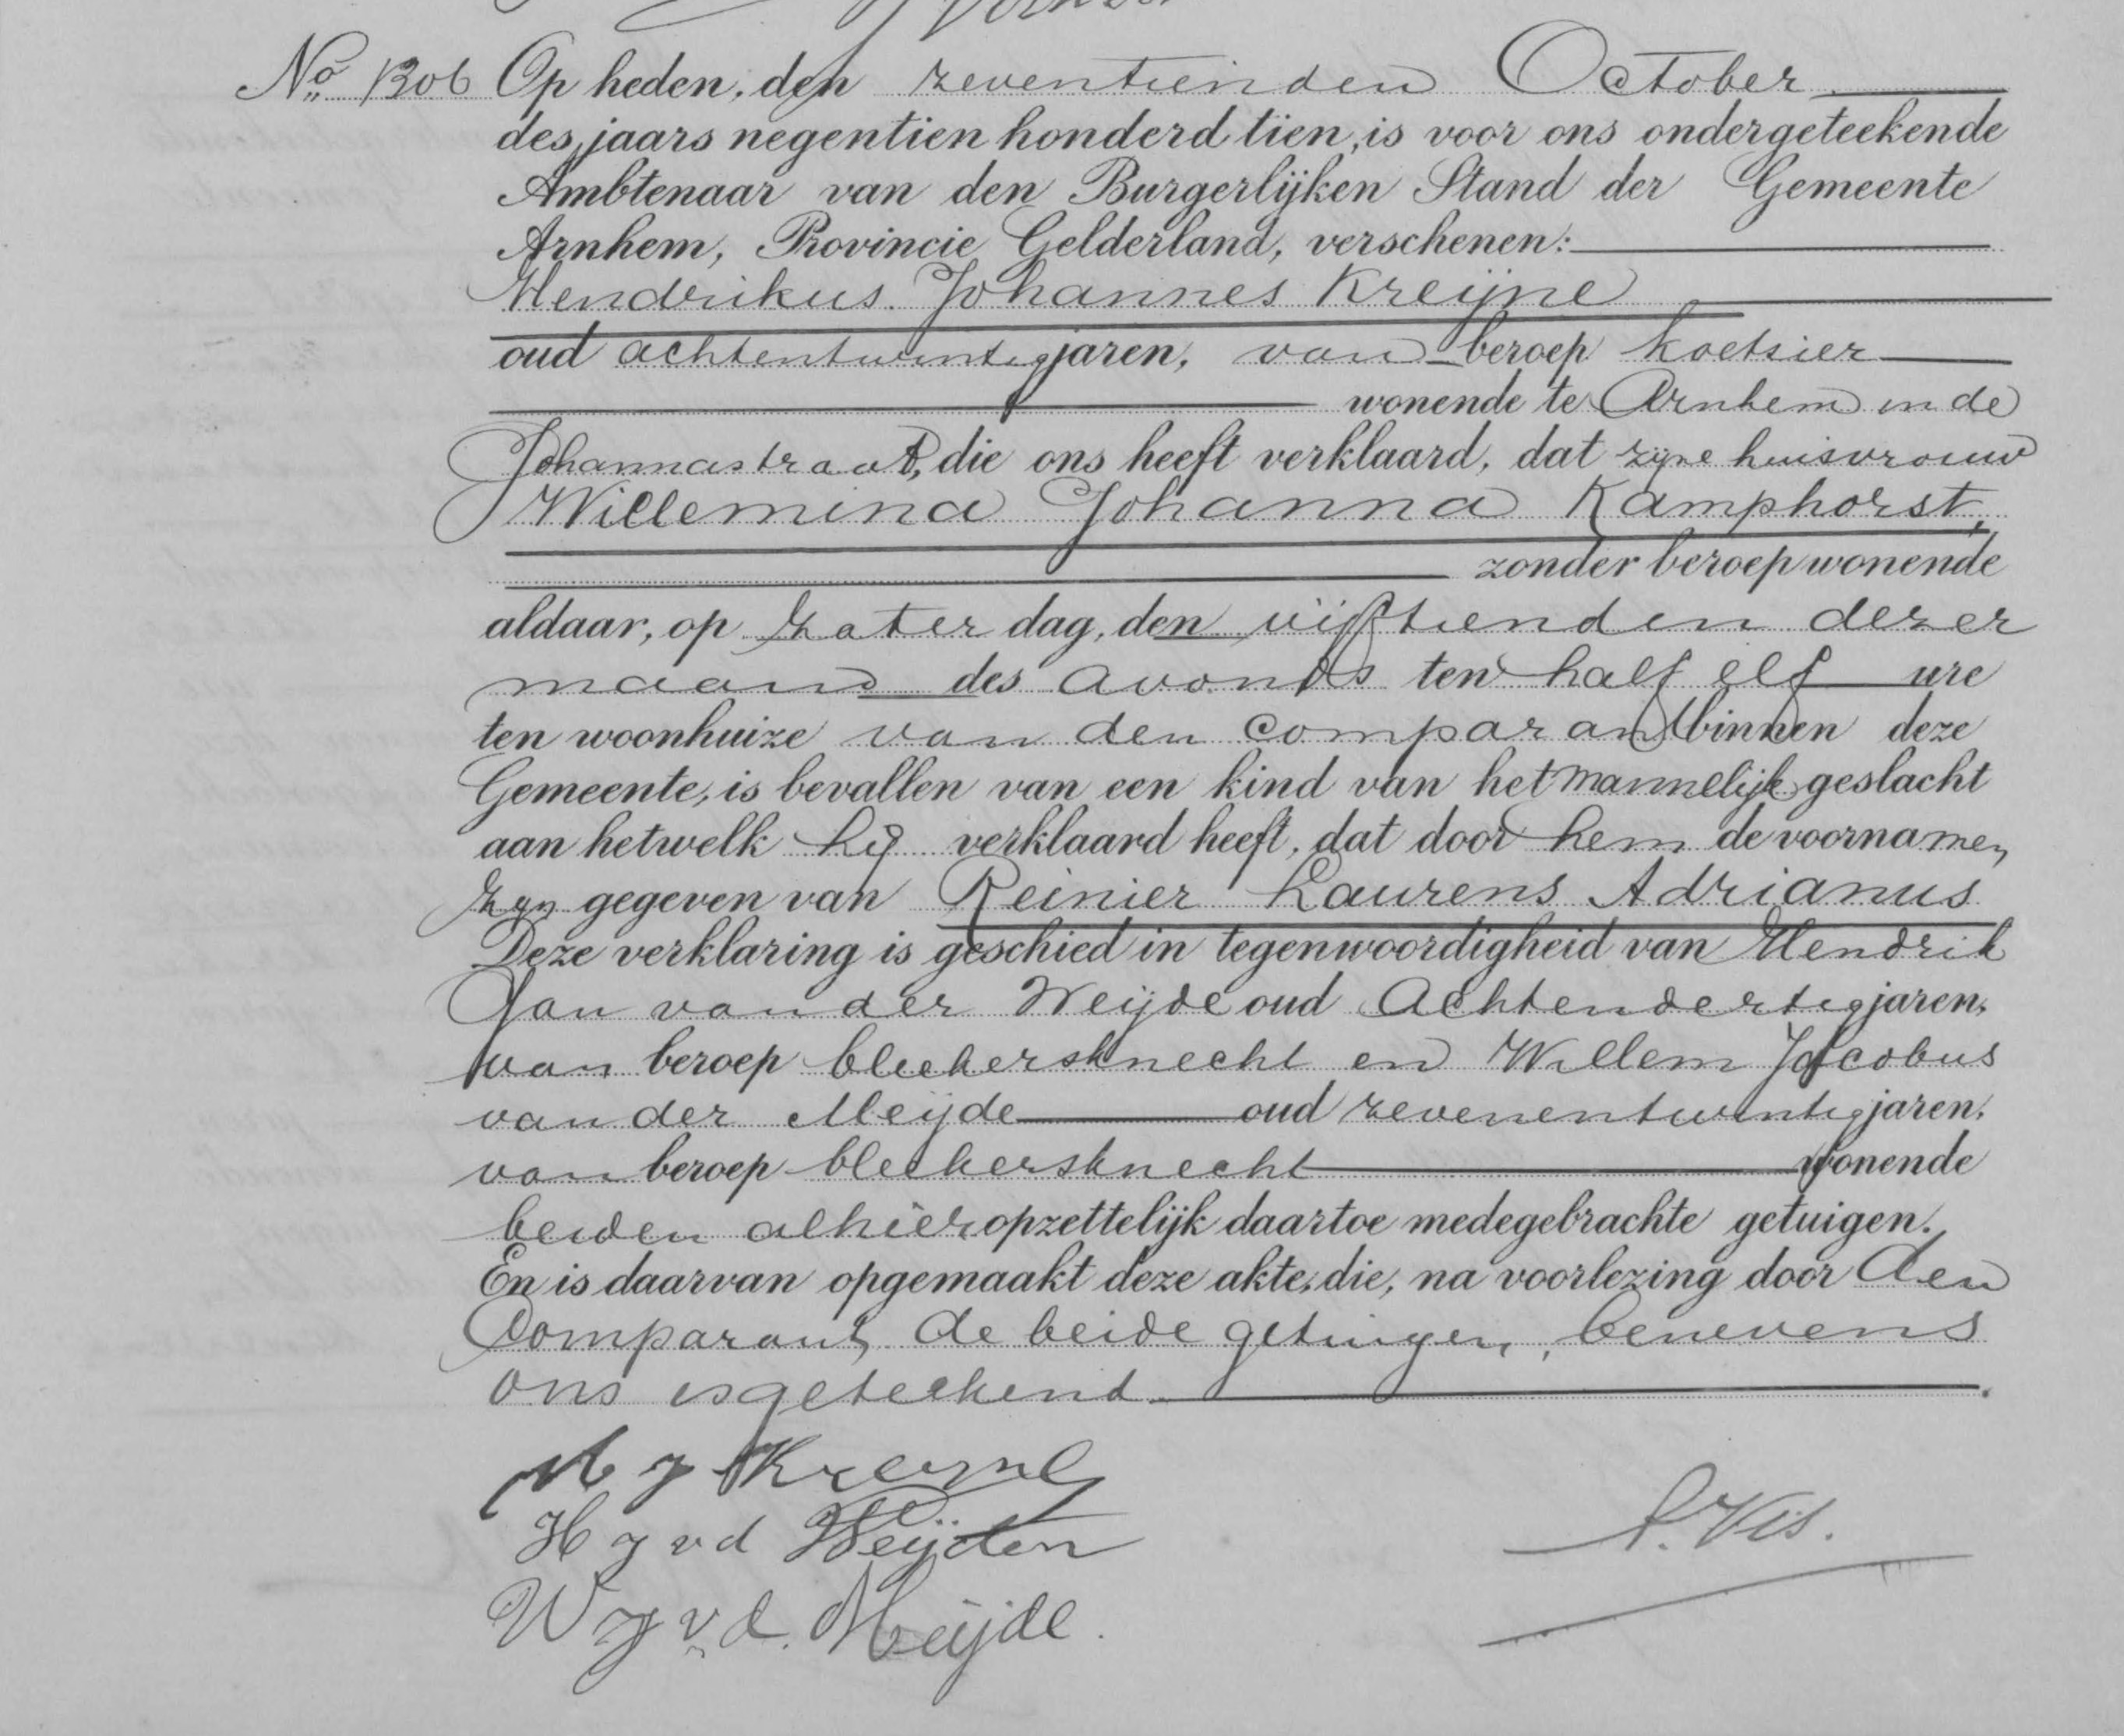 No 1306 Op heden, den zeventienden October
des jaars negentien honderd tien, is voor ons ondergeteekende
Ambtenaar van den Burgerlijken Stand der Gemeente
Arnhem, Provincie Gelderland, verschenen:
Hendrikus Johannes Kreijne
oud achtentwintig jaren, van beroep koetsier
wonende te Arnhem in de
Johannastraat, die ons heeft verklaard, dat zijne huisvrouw
Willemina Johanna Kamphorst,
zonder beroep wonende
aldaar, op zaterdag, den vijftienden dezer
maand des avonds ten half elf ure
ten woonhuize van den comparant binnen deze
Gemeente, is bevallen van een kind van het mannelijk geslacht
aan hetwelk hij verklaard heeft, dat door hem de voornamen
zijn gegeven van Reinier Laurens Adrianus
Deze verklaring is geschied in tegenwoordigheid van Hendrik
Jan van der Weijde oud Achtendertig jaren,
van beroep bleekersknecht en Willem Jacobus
van der Meijde oud zevenentwintig jaren,
van beroep bleekersknecht wonende
beiden alhier opzettelijk daartoe medegebrachte getuigen.
En is daarvan opgemaakt deze akte, die, na voorlezing door den
Comparant, de beide getuigen, benevens
ons is geteekend.
H J Kreijne
H J v d Weijden
W J v. d. Meijde.
A. Vis.